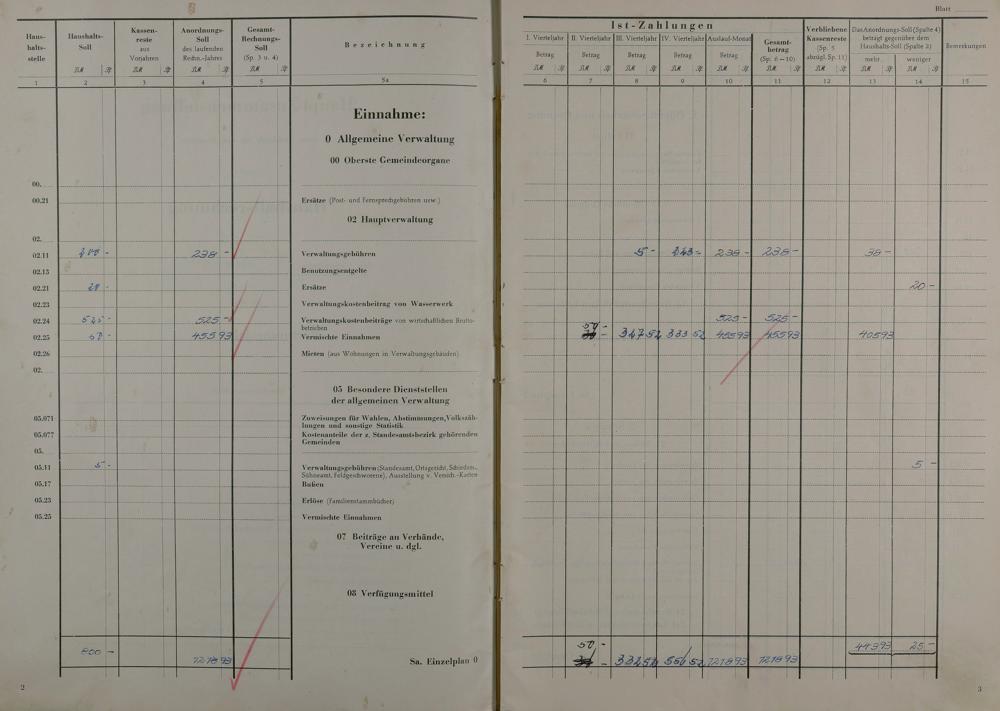 Blatt
Haus-
halts-
stelle
Haushalts-
Soll
Kassen-
reste
aus
Vorjahren
Anordnungs-
Soll
des laufenden
Rechn.-Jahres
Gesamt-
Rechnungs-
Soll
(Sp. 3 u. 4)
Bezeichnung
1 2 3 4 5 5a
Ist-Zahlungen
I. Vierteljahr II. Vierteljahr III. Vierteljahr IV. Vierteljahr Auslauf-Monat
Betrag Betrag Betrag Betrag Betrag
Gesamt-
betrag
(Sp. 6—10)
Verbliebene
Kassenreste
(Sp. 5
abzügl. Sp. 11)
Das Anordnungs-Soll (Spalte 4)
beträgt gegenüber dem
Haushalts-Soll (Spalte 2)
mehr weniger
Bemerkungen
6 7 8 9 10 11 12 13 14 15
Einnahme:
0 Allgemeine Verwaltung
00 Oberste Gemeindeorgane
00.
00.21 Ersätze (Post- und Fernsprechgebühren usw.)
02 Hauptverwaltung
02.
02.11 200 - 238 - Verwaltungsgebühren 5 - 238 - 238 - 38 -
02.13 Benutzungsentgelte
02.21 20 - Ersätze 20 -
02.23 Verwaltungskostenbeitrag von Wasserwerk
02.24 525 - 525 - Verwaltungskostenbeiträge von wirtschaftlichen Brutto-
betrieben 525 - 525 -
02.25 50 - 455 93 Vermischte Einnahmen 50 - 327 52 333 52 455 93 455 93 405 93
02.26 Mieten (aus Wohnungen in Verwaltungsgebäuden)
02.
05 Besondere Dienststellen
der allgemeinen Verwaltung
05.071 Zuweisungen für Wahlen, Abstimmungen, Volkszäh-
lungen und sonstige Statistik
05.077 Kostenanteile der z. Standesamtsbezirk gehörenden
Gemeinden
05.
05.11 5 - Verwaltungsgebühren (Standesamt, Ortsgericht, Schiedsm.,
Sühneamt, Feldgeschworene), Ausstellung v. Versich.-Karten 5 -
05.17 Bußen
05.23 Erlöse (Familienstammbücher)
05.25 Vermischte Einnahmen
07 Beiträge an Verbände,
Vereine u. dgl.
08 Verfügungsmittel
800 - 1218 93 Sa. Einzelplan 0 50 - 332 52 556 52 1218 93 1218 93 443 93 25 -
2
3